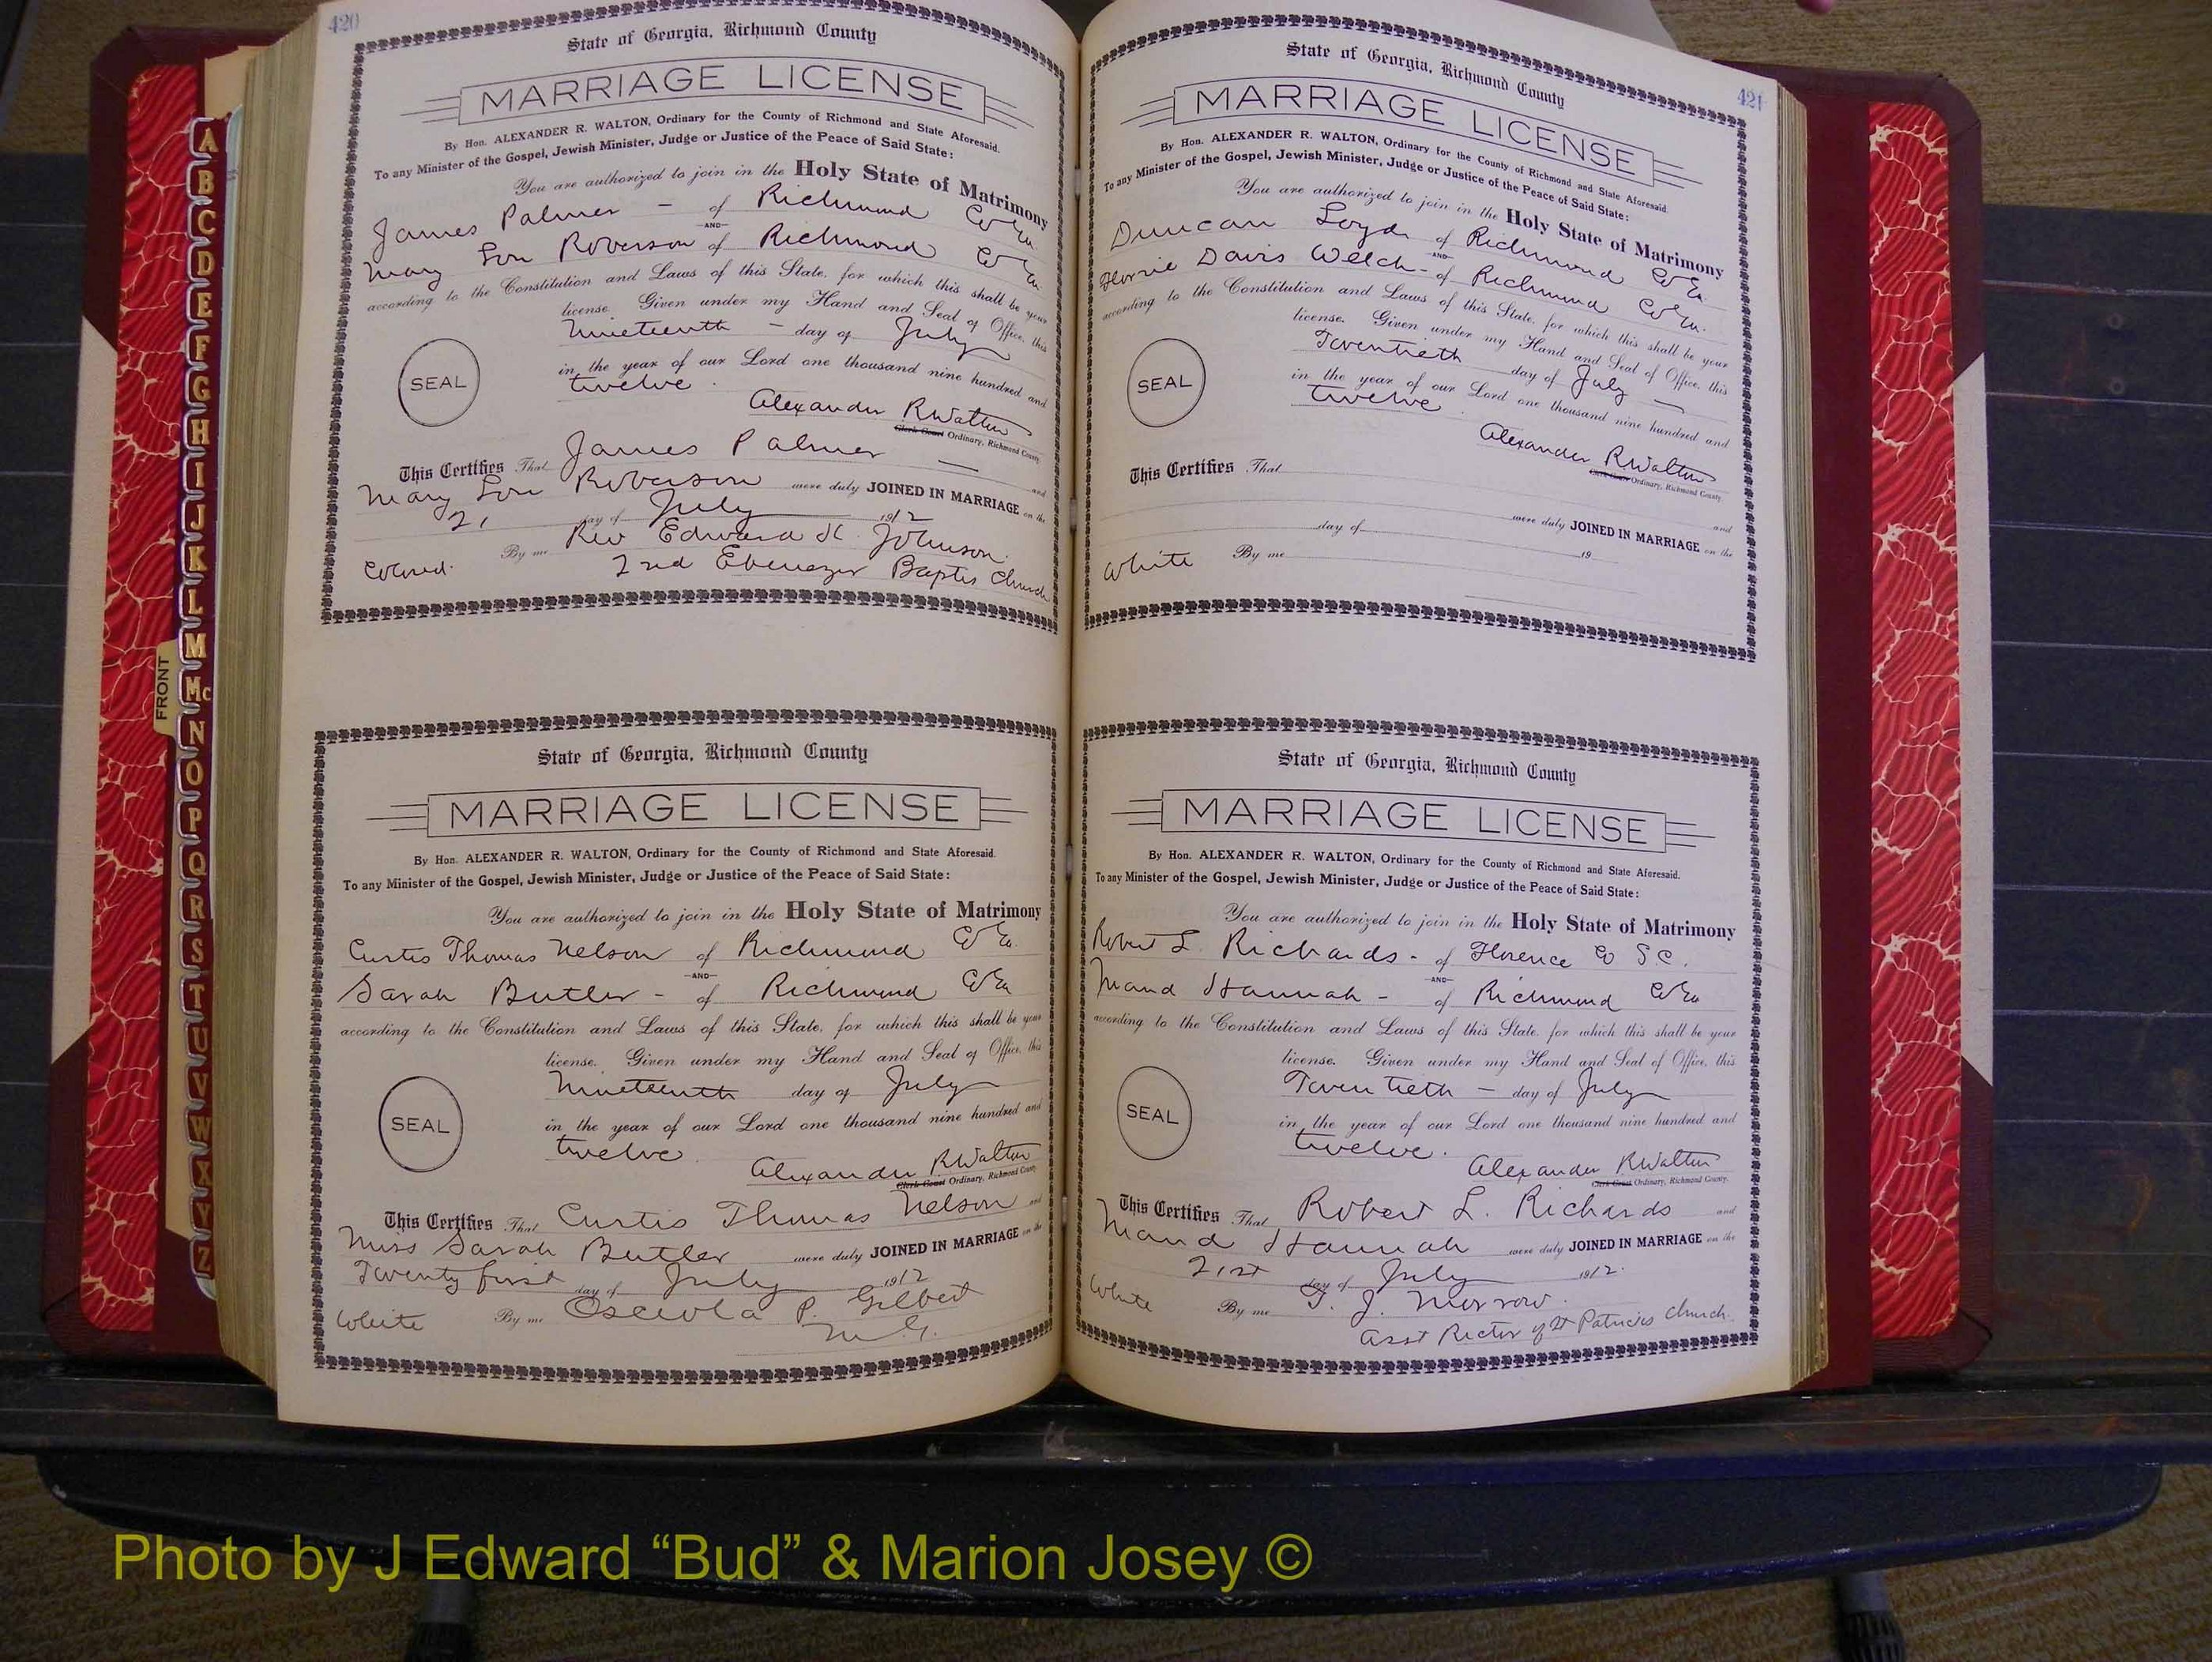 420
State of Georgia, Richmond County
MARRIAGE LICENSE
By Hon. ALEXANDER R. WALTON, Ordinary for the County of Richmond and State Aforesaid.
To any Minister of the Gospel, Jewish Minister, Judge or Justice of the Peace of Said State:
You are authorized to join in the Holy State of Matrimony
James Palmer - of Richmond Co Ga.
-AND-
Mary Lou Roberson of Richmond Co Ga.
according to the Constitution and Laws of this State, for which this shall be your
license. Given under my Hand and Seal of Office, this
Nineteenth - day of July
in the year of our Lord one thousand nine hundred and
twelve.
SEAL
Alexander R Walton
Clerk Court Ordinary, Richmond County.
This Certifies That James Palmer and
Mary Lou Roberson were duly JOINED IN MARRIAGE on the
21 day of July 1912
By me Rev Edward K. Johnson.
Colored. 2nd Ebenezer Baptis Church
State of Georgia, Richmond County
MARRIAGE LICENSE
By Hon. ALEXANDER R. WALTON, Ordinary for the County of Richmond and State Aforesaid.
To any Minister of the Gospel, Jewish Minister, Judge or Justice of the Peace of Said State:
You are authorized to join in the Holy State of Matrimony
Curtis Thomas Nelson of Richmond Co Ga.
-AND-
Sarah Butler - of Richmond Co Ga
according to the Constitution and Laws of this State, for which this shall be your
license. Given under my Hand and Seal of Office, this
Nineteenth day of July
in the year of our Lord one thousand nine hundred and
twelve
SEAL
Alexander R Walton
Clerk Court Ordinary, Richmond County.
This Certifies That Curtis Thomas Nelson and
Miss Sarah Butler were duly JOINED IN MARRIAGE on the
Twenty first day of July 1912
White By me Osceola P. Gilbert
M.G.
421
State of Georgia, Richmond County
MARRIAGE LICENSE
By Hon. ALEXANDER R. WALTON, Ordinary for the County of Richmond and State Aforesaid.
To any Minister of the Gospel, Jewish Minister, Judge or Justice of the Peace of Said State:
You are authorized to join in the Holy State of Matrimony
Duncan Loyd of Richmond Co Ga.
-AND-
Florrie Davis Welch - of Richmond Co Ga.
according to the Constitution and Laws of this State, for which this shall be your
license. Given under my Hand and Seal of Office, this
Twentieth day of July
in the year of our Lord one thousand nine hundred and
twelve.
SEAL
Alexander R Walton
Clerk Court Ordinary, Richmond County.
This Certifies That
and
were duly JOINED IN MARRIAGE on the
day of 19
White By me
State of Georgia, Richmond County
MARRIAGE LICENSE
By Hon. ALEXANDER R. WALTON, Ordinary for the County of Richmond and State Aforesaid.
To any Minister of the Gospel, Jewish Minister, Judge or Justice of the Peace of Said State:
You are authorized to join in the Holy State of Matrimony
Robert L Richards - of Florence Co S.C.
-AND-
Maud Hannah - of Richmond Co Ga
according to the Constitution and Laws of this State, for which this shall be your
license. Given under my Hand and Seal of Office, this
Twentieth - day of July
in the year of our Lord one thousand nine hundred and
twelve.
SEAL
Alexander R Walton
Clerk Court Ordinary, Richmond County.
This Certifies That Robert L. Richards and
Maud Hannah were duly JOINED IN MARRIAGE on the
21st day of July 1912.
White By me T. J. Morrow.
Asst Rector of St Patricks Church.
A
B
C
D
E
F
G
H
I
J
K
L
M
Mc
N
O
P
Q
R
S
T
U
V
W
X
Y
Z
FRONT
Photo by J Edward “Bud” & Marion Josey ©